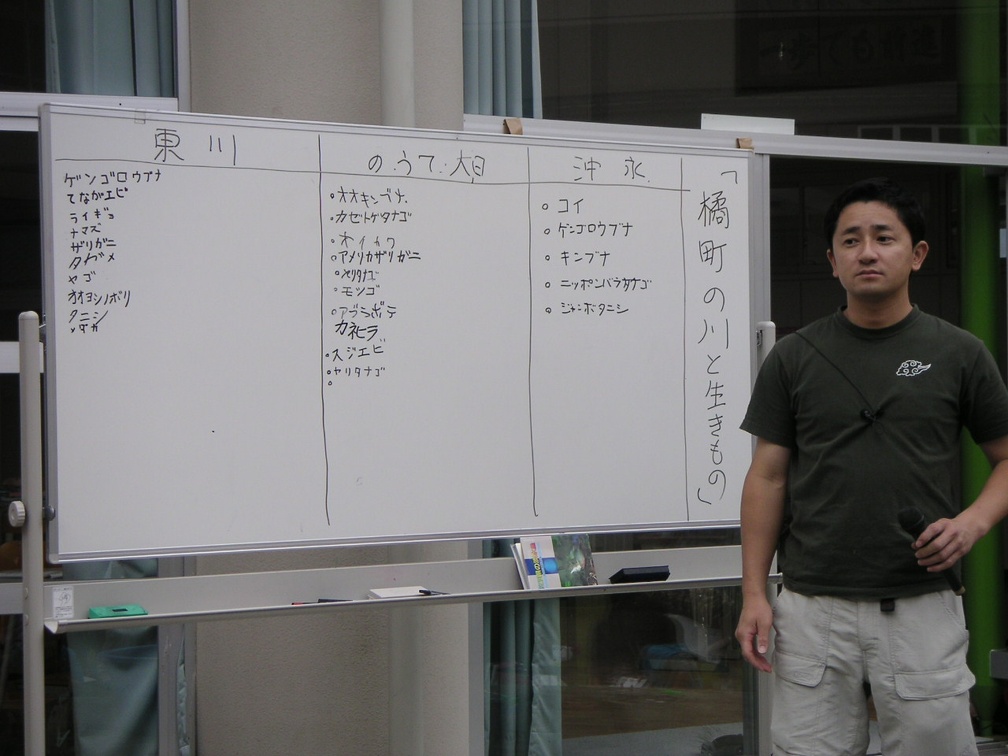 「橘町の川と生きもの」
東川
ゲンゴロウブナ
てながエビ
ライギョ
ナマズ
ザリガニ
タガメ
ヤゴ
オオヨシノボリ
タニシ
メダカ
のうて・大日
・オオキンブナ
・カゼトゲタナゴ
・オイカワ
・アメリカザリガニ
・ヤリタナゴ
・モツゴ
・アブラボテ
カネヒラ
・スジエビ
・ヤリタナゴ
沖永
・コイ
・ゲンゴロウブナ
・キンブナ
・ニッポンバラタナゴ
・ジャンボタニシ